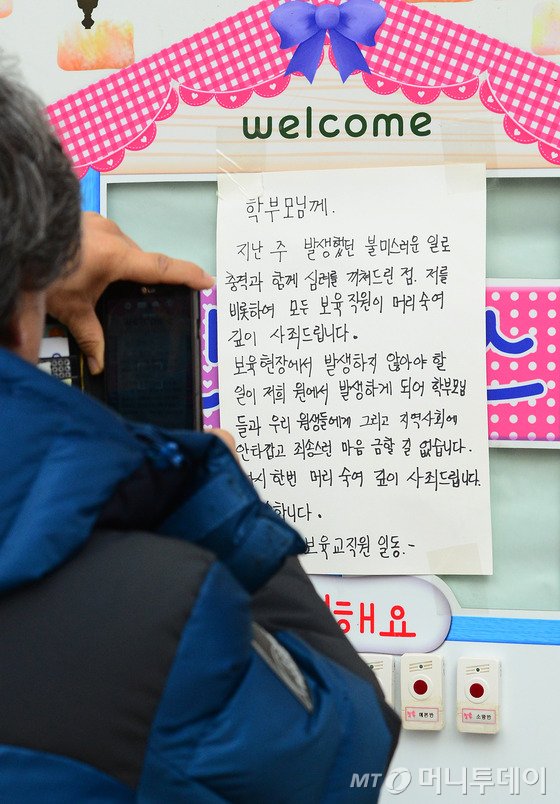 welcome
학부모님께.
지난 주 발생했던 불미스러운 일로
충격과 함께 심려를 끼쳐드린 점. 저를
비롯하여 모든 보육직원이 머리숙여
깊이 사죄드립니다.
보육현장에서 발생하지 않아야 할
일이 저희 원에서 발생하게 되어 학부모님
들과 우리 원생들에게 그리고 지역사회에
안타깝고 죄송스런 마음 금할 길 없습니다.
한번 머리 숙여 깊이 사죄드립니다.
보육교직원 일동.-
해요
MT 머니투데이